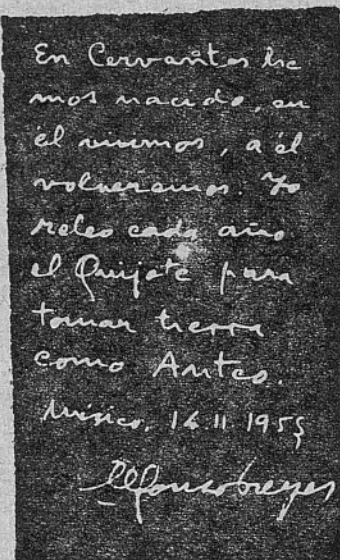 En Cervantes he
mos nacido, en
él vivimos, a él
volveremos. Yo
releo cada año
el Quijote para
tomar tierra
como Anteo.
México, 16.II.1955
Alfonso Reyes